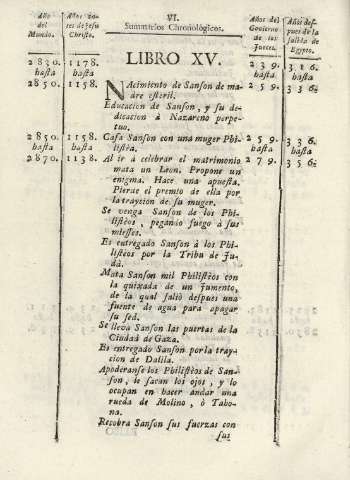 VI.
Summarios Chronològicos.
Año del Mundo.
Años antes de Jesu Christo.
Años del Govierno de los Jueces.
Años despues de la salida de Egypto.
LIBRO XV.
2830. 1178. 239. 316.
hasta hasta hasta hasta
2850. 1158. 259. 336.
NAcimiento de Sanson de madre esteril.
Educacion de Sanson, y su dedicacion à Nazareno perpetuo.
2850. 1158. Casa Sanson con una muger Philistèa. 259. 336.
hasta hasta hasta hasta
2870. 1138. 279. 356.
Al ir à celebrar el matrimonio
mata un Leon. Propone un
enigma. Hace una apuesta.
Pierde el premio de ella por
la traycion de su muger.
Se venga Sanson de los Philistèos, pegando fuego à sus
miesses.
Es entregado Sanson à los Philistèos por la Tribu de Judà.
Mata Sanson mil Philistèos con
la quixada de un jumento,
de la qual saliò despues una
fuente de agua para apagar
su sed.
Se lleva Sanson las puertas de la
Ciudad de Gaza.
Es entregado Sanson por la traycion de Dalila.
Apoderanse los Philistèos de Sanson, le sacan los ojos, y lo
ocupan en hacer andar una
rueda de Molino, ò Tahona.
Recobra Sanson sus fuerzas con
sus